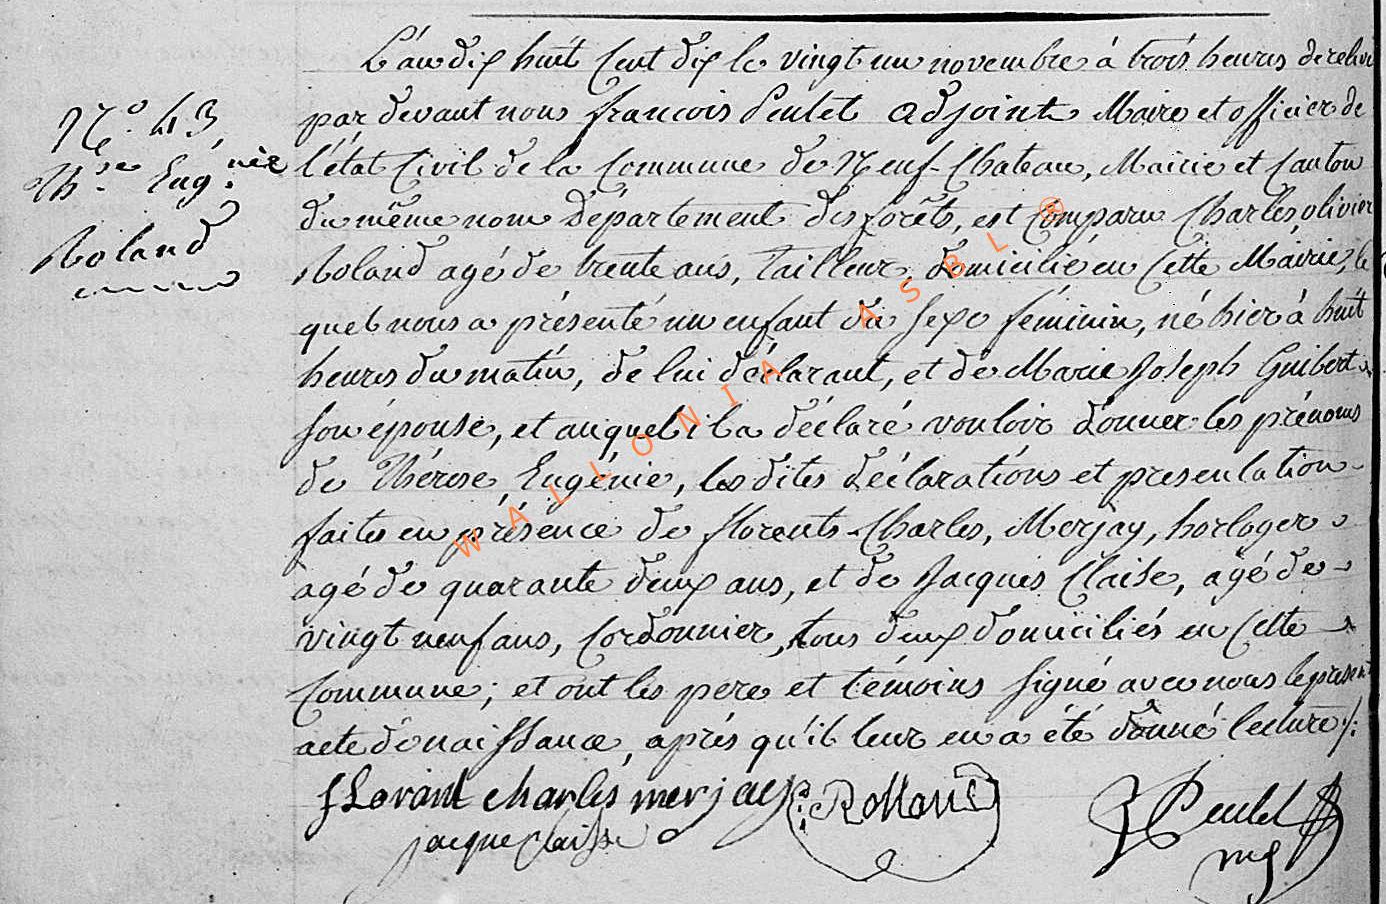 L'an dix huit cent dix le vingt un novembre à trois heures de relevé
N.º 43
par devant nous françois Peulet adjoint Maire et officier de
Th.se Eug.nie
l'état Civil de la Commune de Neuf-Chateau, Mairie et Canton
du même nom Département des forêts, est comparu Charles olivier
Roland
Roland agé de trente ans, Tailleur, domicilié en Cette Mairie, le
quel nous a présenté un enfant du sexe féminin, né hier à huit
heures du matin, de lui déclarant, et de Marie Joseph Guibert
son épouse, et auquel il a déclaré vouloir donner les prénoms
de Thérese Eugénie, les dites déclarations et presentation
faites en présence de florents-Charles, Merjay, horloger
agé de quarante deux ans, et de Jacques Claise, agé de
vingt neuf ans, Cordonnier, tous deux domiciliés en Cette
Commune; et ont les pere et témoins signé avec nous le présent
acte de naissance, après qu'il leur en a été donné lecture /:
florant charles merjay C: Rolland Peulet
jacque Claisse
WALLONIA ASBL ®